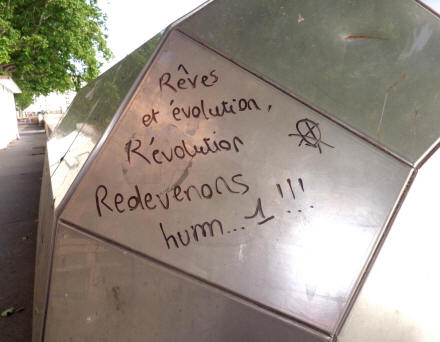 Rêves
et évolution,
R'évolution
Redevenons
hum...1!!!